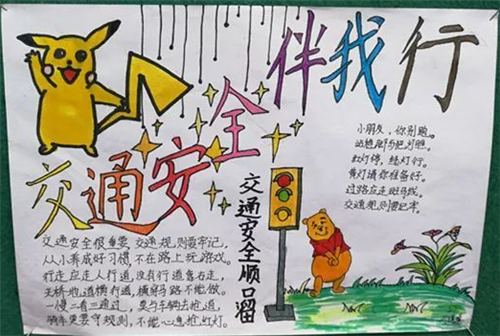 交通安全
伴我行
小朋友,你别跑。
红灯停,绿灯行。
黄灯请你准备好。
过路应走斑马线。
交通规则要记牢。
交通安全顺口溜
交通安全很重要 交通规则要牢记,
从小养成好习惯 不在路上玩游戏。
行走应走人行道,没有行道靠右走,
天桥地道横行道,横穿马路不能做。
一慢二看三通过,莫与车辆去抢道
骑车更要守规则,不能心急抢红灯